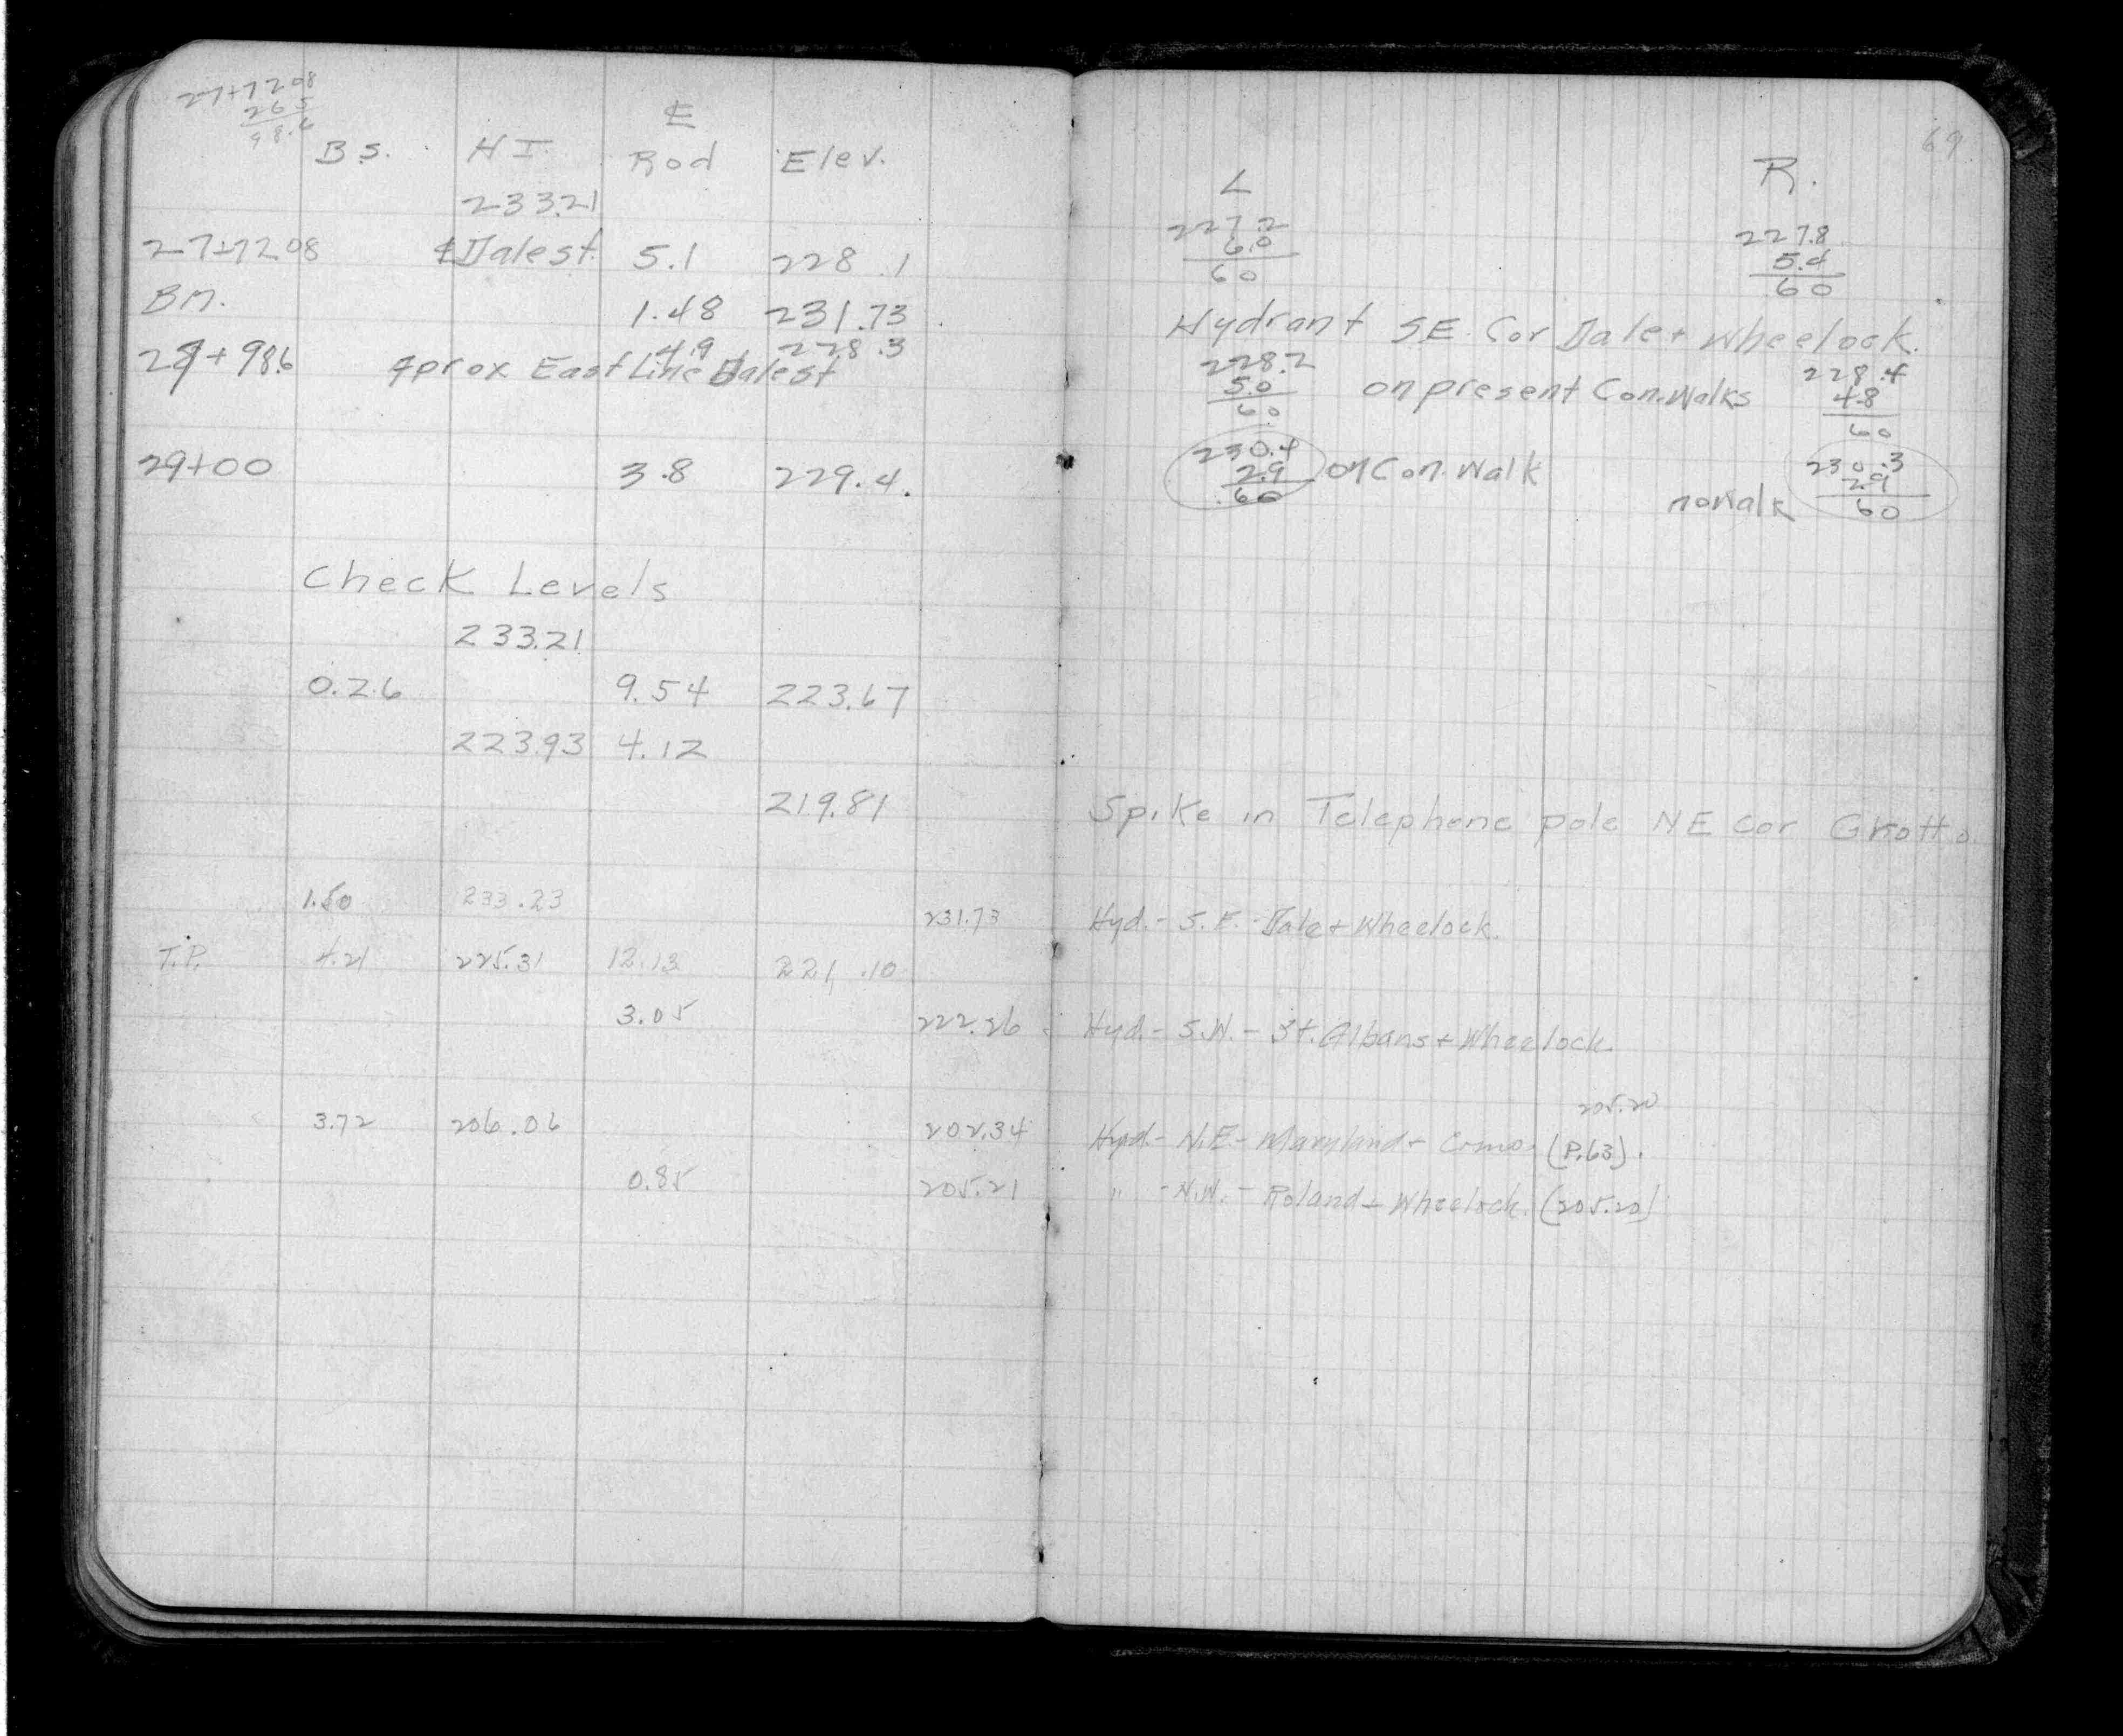 27+7208
265
98.6
69
℄
B.S. H I. Rod Elev. L R.
233.21
27+7208 ℄ Dale st. 5.1 228.1 227.2 227.8
6.0 5.4
60 60
BM. 1.48 231.73 Hydrant SE. Cor Dale + Wheelock.
4.9 228.3 228.2 228.4
+986 Aprox East Line Dale st 5.0 on present Con. Walks 4.8
60 60
29+00 3.8 229.4. 230.4 on Con. Walk 230.3
2.9 no Walk 2.9
60 60
Check Levels
233.21
0.26 9.54 223.67
223.93 4.12
219.81 Spike in Telephone pole NE cor Grotto.
1.50 233.23 231.73 Hyd. - S.E. - Dale + Wheelock.
T.P. 4.21 225.31 12.13 221.10
3.05 222.26 Hyd. - S.W. - St. Albans + Wheelock.
205.20
3.72 206.06 202.34 Hyd. - N.E. - Maryland + (P.63).
0.85 205.21 " - N.W. - Roland + Wheelock. (205.20)